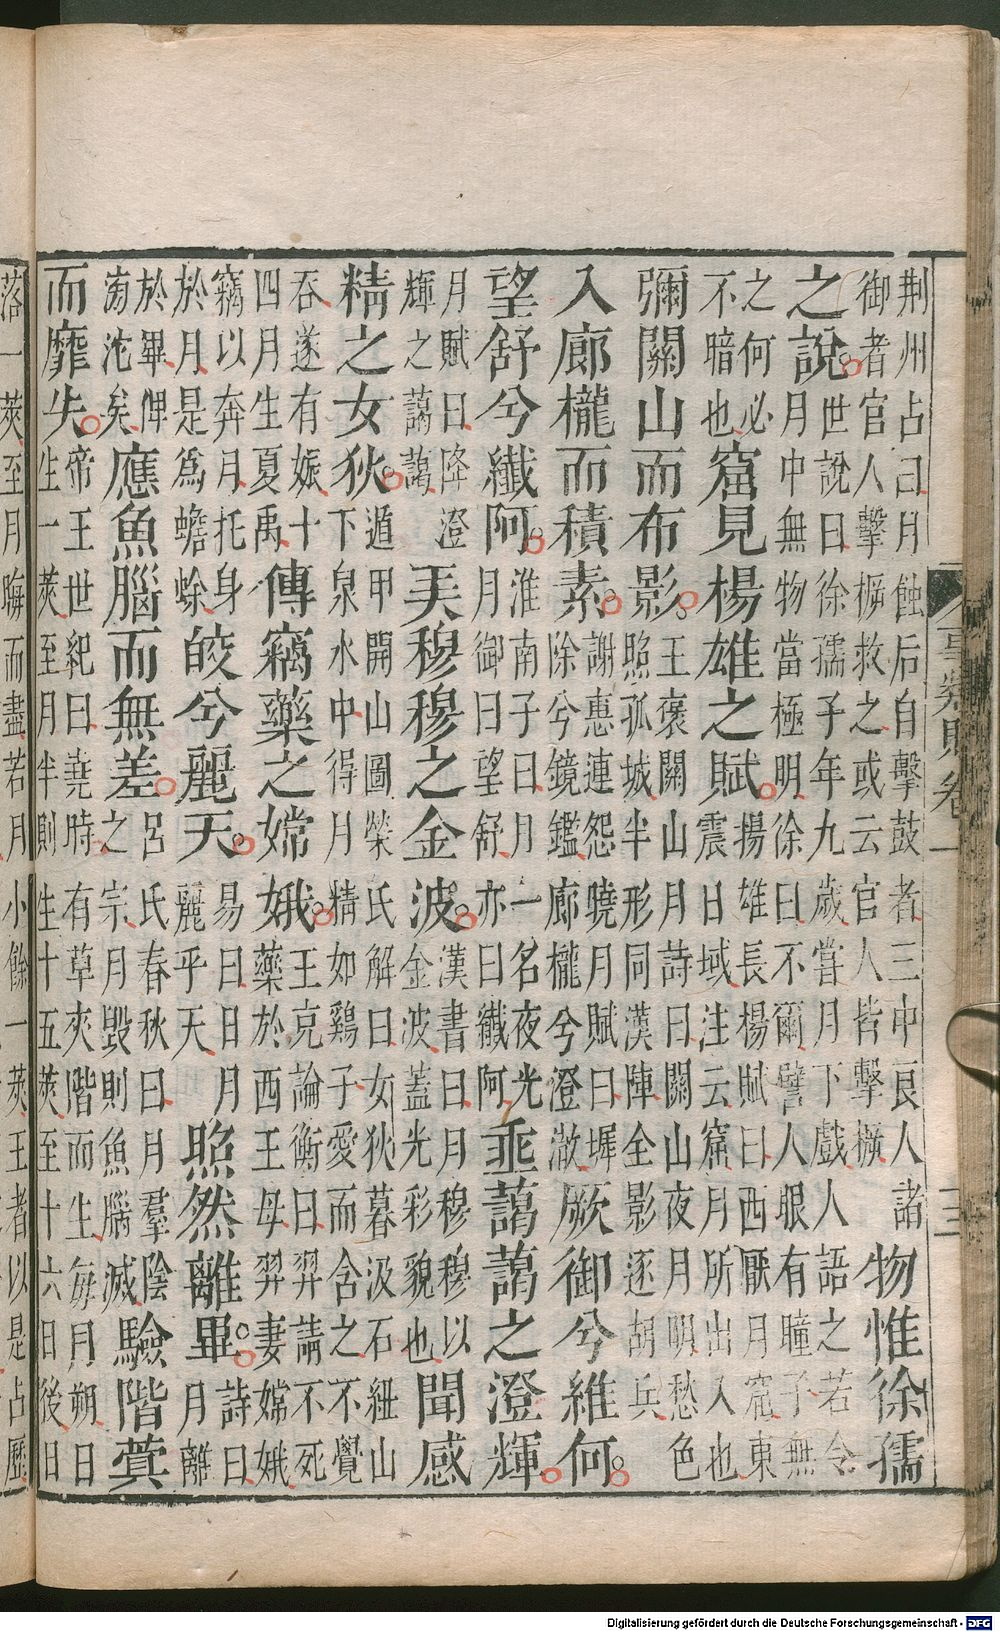 荆州占曰月蝕后自擊鼓者三中良人諸
御者官人擊橛救之或云官人皆擊橛
物惟徐孺
之說
世說曰徐孺子年九歲嘗月下戲人語之若令
月中無物當極明徐曰不爾譬人眼有瞳子無
之何必
不暗也
窟見楊雄之賦
揚雄長楊賦曰西厭月窟東
震日域注云窟月所出入也
彌關山而布影
王褒關山月詩曰關山夜月明愁色
照孤城半形同漢陣全影逐胡兵
入廊櫳而積素
謝惠連怨曉月賦曰墀
除兮鏡鑑廊櫳兮澄澈
厥御兮維何
望舒兮纖阿
淮南子曰月一名夜光
月御曰望舒亦曰纖阿
垂藹藹之澄輝
月賦曰降澄
輝之藹藹
美穆穆之金波
漢書曰月穆穆以
金波蓋光彩貌也
聞感
精之女狄
遁甲開山圖榮氏解曰女狄暮汲石紐山
下泉水中得月精如鷄子愛而含之不覺
吞遂有娠十
四月生夏禹
傳竊藥之嫦娥
王充論衡曰羿請不死
藥於西王母羿妻嫦娥
竊以奔月托身
於月是爲蟾蜍
皎兮麗天
易曰日月
麗乎天
照然離畢
詩曰
月離
於畢俾
滂沱矣
應魚腦而無差
呂氏春秋曰月羣陰
之宗月毀則魚腦減
驗階蓂
而靡失
帝王世紀曰堯時有草夾階而生每月朔日
生一莢至月半則生十五莢至十六日後日
落一莢至月晦而盡若月小餘一莢王者以是占歷
Digitalisierung gefördert durch die Deutsche Forschungsgemeinschaft - DFG